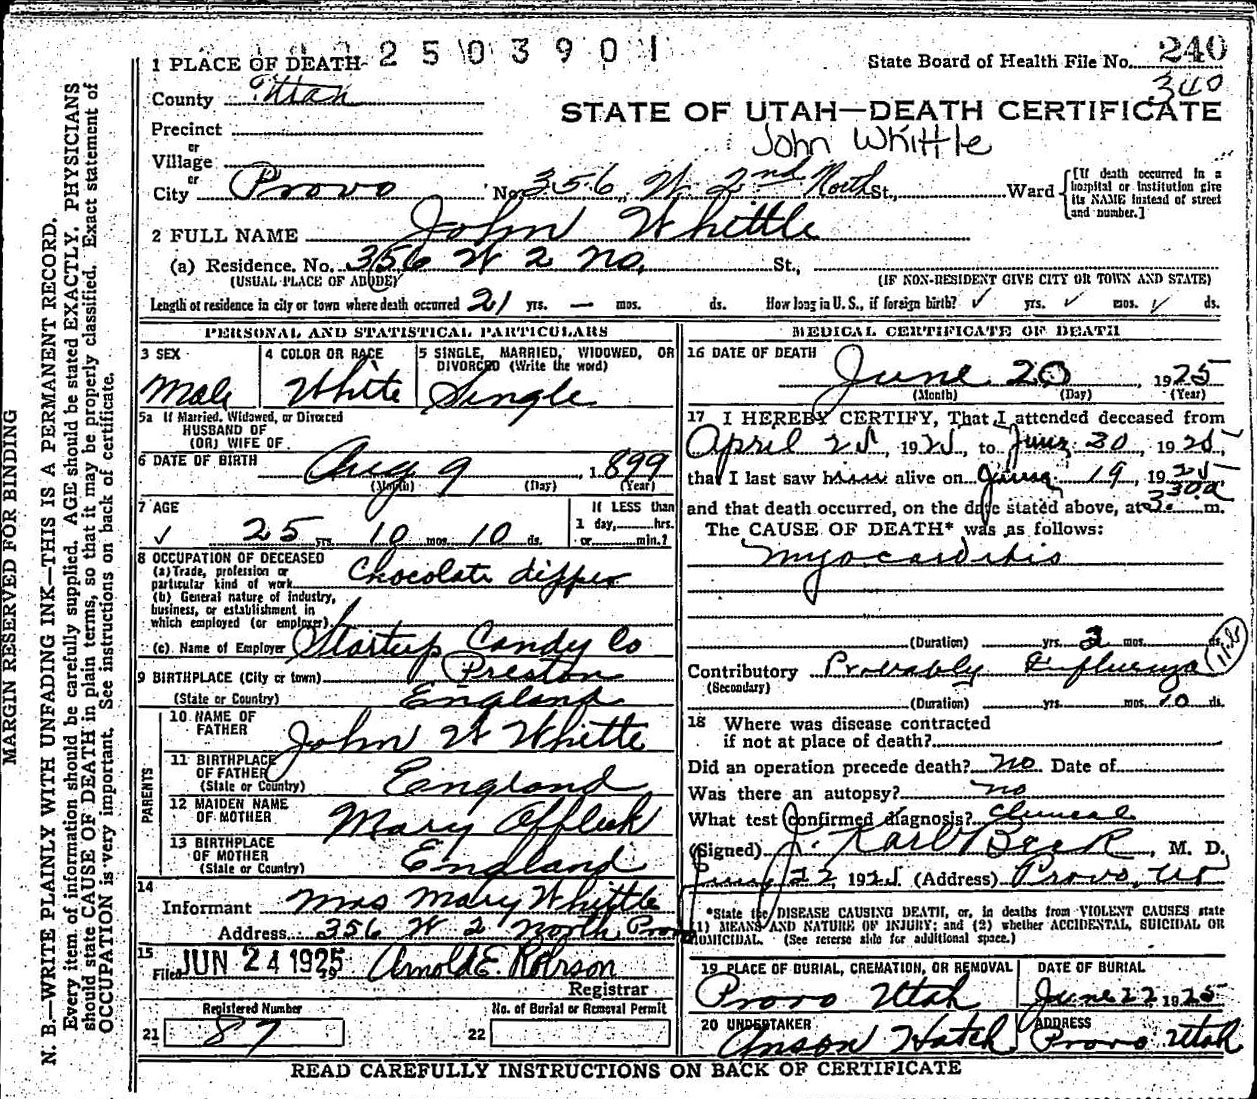 1 PLACE OF DEATH 2 5 0 3 9 0 1
State Board of Health File No. 240
340
County Utah
STATE OF UTAH—DEATH CERTIFICATE
John Whittle
Precinct
or
Village
or
City Provo No. 356 W 2nd North St., Ward
[If death occurred in a hospital or institution give its NAME instead of street and number.]
2 FULL NAME John Whittle
(a) Residence. No. 356 W 2 No. St.,
(USUAL PLACE OF ABODE) (IF NON-RESIDENT GIVE CITY OR TOWN AND STATE)
Length of residence in city or town where death occurred 21 yrs. — mos. ds. How long in U.S., if foreign birth? ✓ yrs. ✓ mos. ✓ ds.
PERSONAL AND STATISTICAL PARTICULARS
3 SEX
Male
4 COLOR OR RACE
White
5 SINGLE, MARRIED, WIDOWED, OR DIVORCED (Write the word)
Single
5a If Married, Widowed, or Divorced
HUSBAND OF
(OR) WIFE OF
6 DATE OF BIRTH Aug 9 1899
(Month) (Day) (Year)
7 AGE
✓ 25 yrs. 10 mos. 10 ds.
If LESS than
1 day, hrs.
or min.?
8 OCCUPATION OF DECEASED
(a) Trade, profession or
particular kind of work Chocolate dipper
(b) General nature of industry,
business, or establishment in
which employed (or employer)
(c) Name of Employer Startup Candy Co
9 BIRTHPLACE (City or town) Preston
(State or Country) England
PARENTS
10 NAME OF
FATHER John W Whitte
11 BIRTHPLACE
OF FATHER England
(State or Country)
12 MAIDEN NAME
OF MOTHER Mary Affleck
13 BIRTHPLACE
OF MOTHER England
(State or Country)
14
Informant Mrs Mary Whittle
Address 356 W 2 North Provo
15
Filed JUN 24 1925 Arnold E. Robison
Registrar
Registered Number
21 87
No. of Burial or Removal Permit
22
MEDICAL CERTIFICATE OF DEATH
16 DATE OF DEATH
June 20, 1925
(Month) (Day) (Year)
17 I HEREBY CERTIFY, That I attended deceased from
April 25, 1925, to June 30, 1925,
that I last saw alive on June 19, 1925
and that death occurred, on the date stated above, at 3:30 a m.
The CAUSE OF DEATH* was as follows:
myocarditis
(Duration) yrs. 2 mos. ds.
Contributory Probably Influenza
(Secondary)
(Duration) yrs. mos. 10 ds.
18 Where was disease contracted
if not at place of death?
Did an operation precede death? no Date of
Was there an autopsy? no
What test confirmed diagnosis? Clinical
(Signed) J. Karl Beck, M. D.
June 22, 1925 (Address) Provo, Ut
*State the DISEASE CAUSING DEATH, or, in deaths from VIOLENT CAUSES state
(1) MEANS AND NATURE OF INJURY; and (2) whether ACCIDENTAL, SUICIDAL OR
HOMICIDAL. (See reverse side for additional space.)
19 PLACE OF BURIAL, CREMATION, OR REMOVAL
Provo Utah
DATE OF BURIAL
June 22 1925
20 UNDERTAKER
Anson Hatch
ADDRESS
Provo Utah
READ CAREFULLY INSTRUCTIONS ON BACK OF CERTIFICATE
MARGIN RESERVED FOR BINDING
N. B.—WRITE PLAINLY WITH UNFADING INK—THIS IS A PERMANENT RECORD.
Every item of information should be carefully supplied. AGE should be stated EXACTLY. PHYSICIANS
should state CAUSE OF DEATH in plain terms, so that it may be properly classified. Exact statement of
OCCUPATION is very important. See instructions on back of certificate.